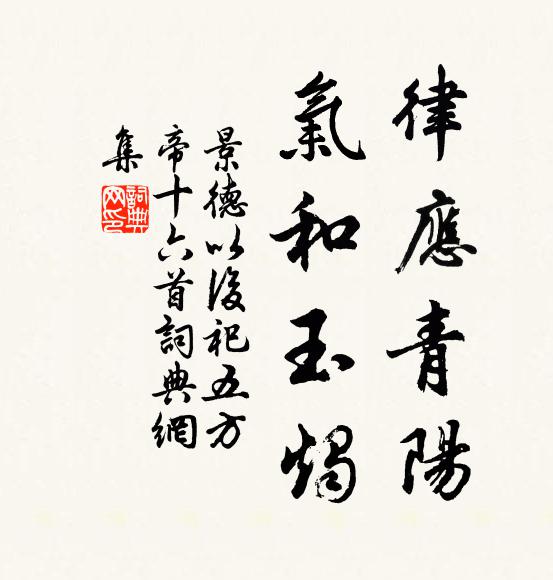 律應青陽
氣和玉燭
景德以後祀五方
帝十六首詞典網
集
詞典
網印